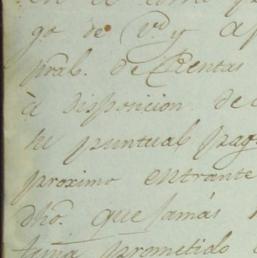 go de Vd y
pral. de Cuentas
à disposicion de
su puntual pag
proximo entrante
dho. que jamás
prometido